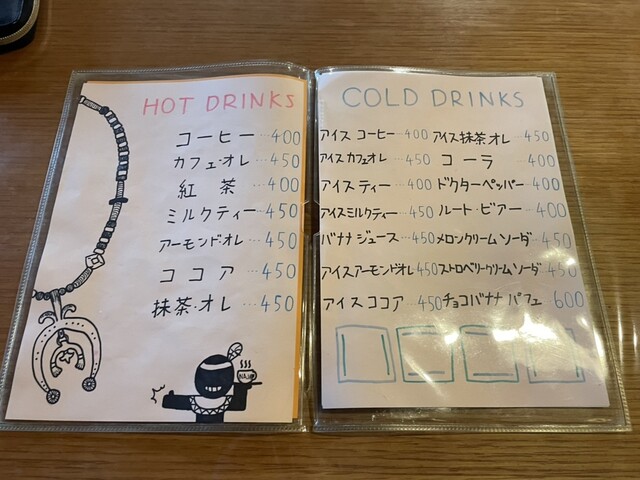 HOT DRINKS
コーヒー…400
カフェ・オレ…450
紅茶…400
ミルクティー…450
アーモンド・オレ…450
ココア…450
抹茶・オレ…450
COLD DRINKS
アイス コーヒー…400
アイス カフェオレ…450
アイス ティー…400
アイスミルクティー…450
バナナ ジュース…450
アイスアーモンドオレ450
アイス ココア 450
アイス抹茶オレ…450
コーラ 400
ドクターペッパー…400
ルート・ビアー…400
メロンクリームソーダ…450
ストロベリークリームソーダ…450
チョコバナナ パフェ 600